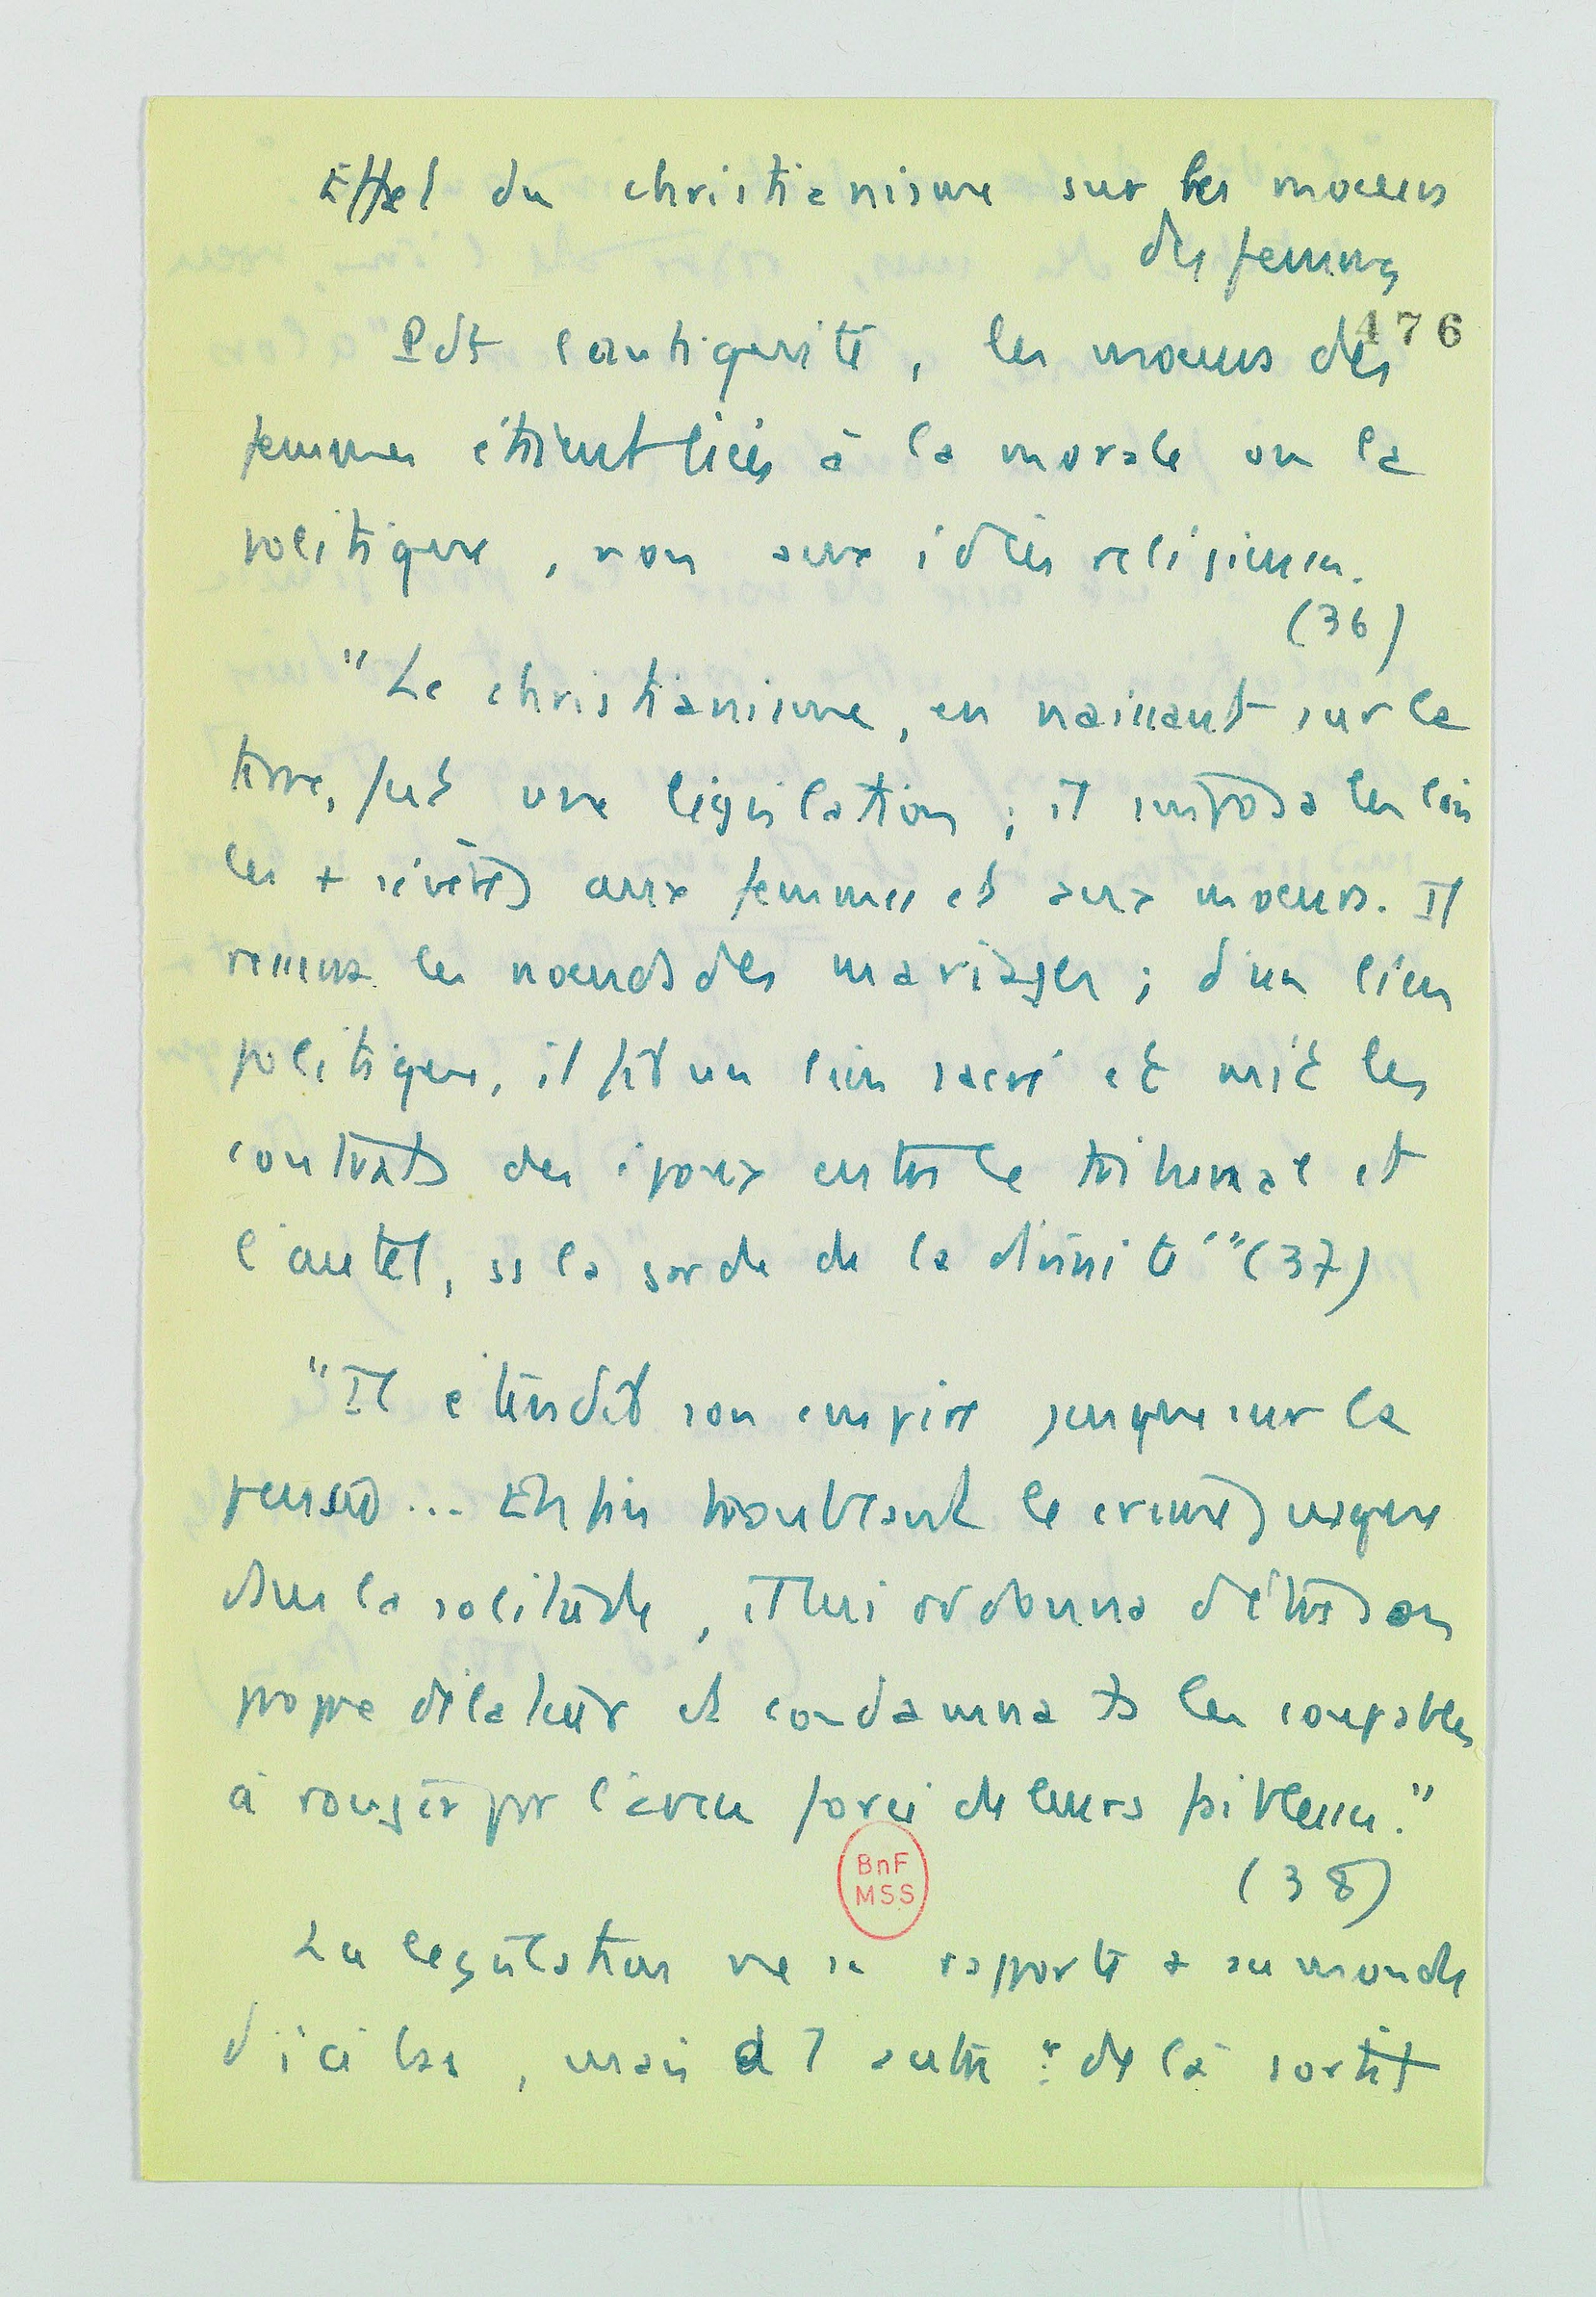 Effet du christianisme sur les moeurs
des femmes
476
Pdt l'antiquité, les moeurs des
femmes étaient liées à la morale ou la
politique, non aux idées religieuses.
(36)
"Le christianisme, en naissant sur la
terre, fut une législation ; il imposa les lois
les + sévères aux femmes et aux moeurs. Il
resserra les noeuds des mariages ; d'un lien
politique, il fit un lien sacré et mit les
contrats des époux entre le tribunal et
l'autel, ss la garde de la divinité" (37)
"Il étendit son empire jusque sur la
pensée... Enfin troublant le crime jusque
dans la solitude, il lui ordonna d'être son
propre délateur et condamna ts les coupables
à rougir par l'aveu forcé de leurs faiblesses."
(38)
BnF
MSS
La législation ne se rapporte + au monde
d'ici bas, mais à l'autre : de là sortit